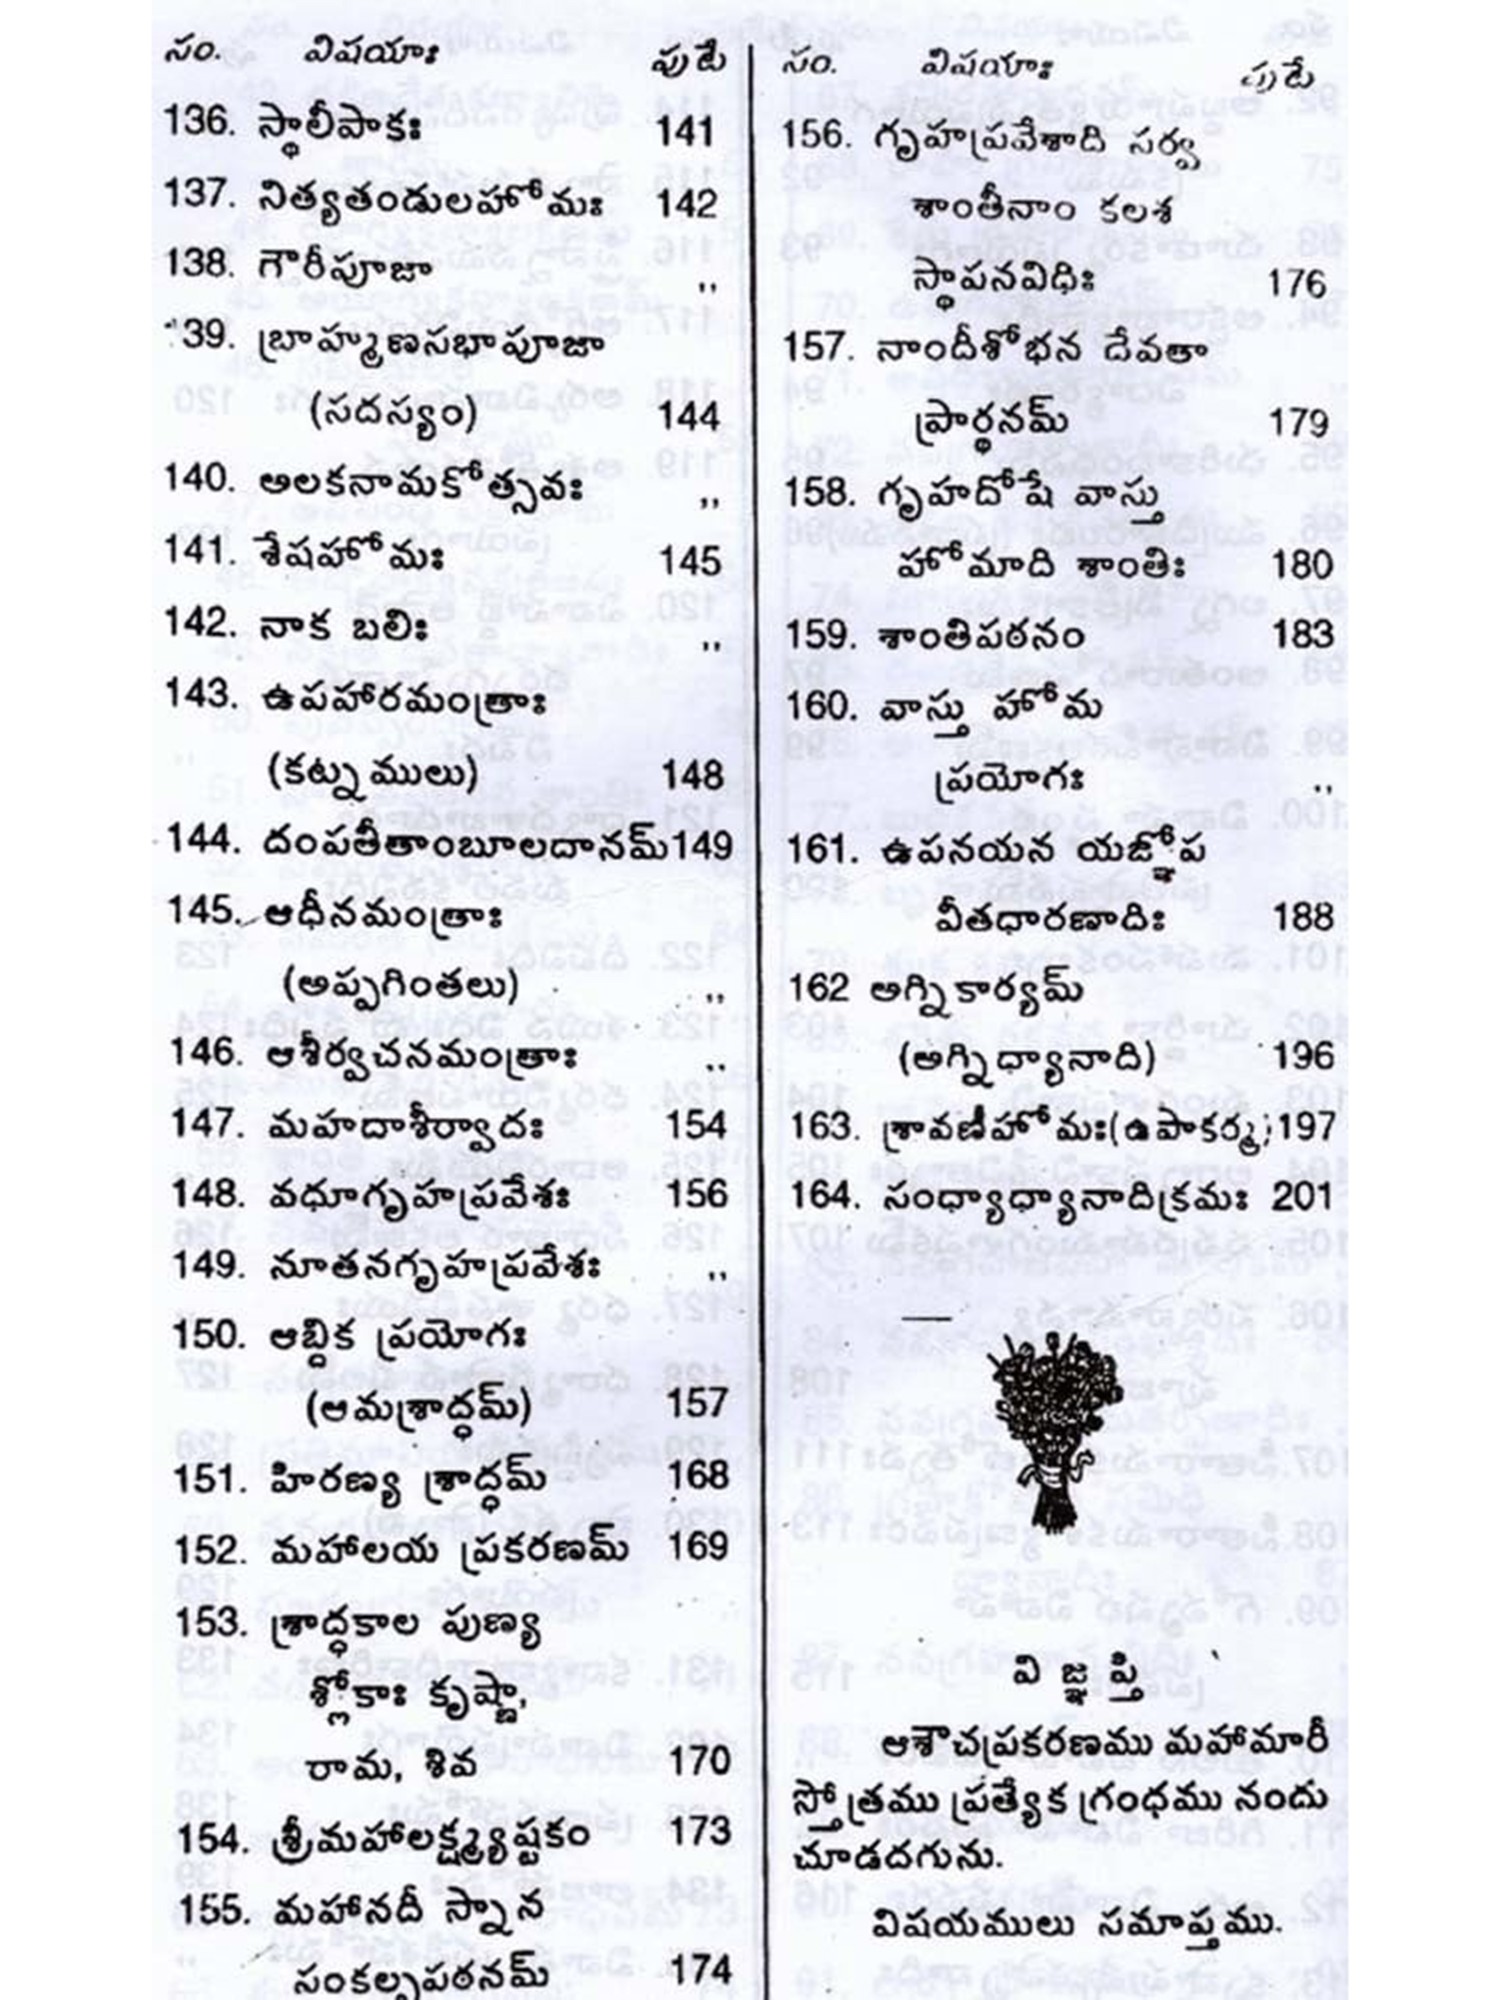 సం. విషయాః పుటే
136. స్థాలీపాకః 141
137. నిత్యతండులహోమః 142
138. గౌరీపూజా ,,
139. బ్రాహ్మణసభాపూజా
(సదస్యం) 144
140. అలకనామకోత్సవః ,,
141. శేషహోమః 145
142. నాక బలిః ,,
143. ఉపహారమంత్రాః
(కట్నములు) 148
144. దంపతీతాంబూలదానమ్ 149
145. ఆధీనమంత్రాః
(అప్పగింతలు) ,,
146. ఆశీర్వచనమంత్రాః ,,
147. మహదాశీర్వాదః 154
148. వధూగృహప్రవేశః 156
149. నూతనగృహప్రవేశః ,,
150. ఆబ్దిక ప్రయోగః
(ఆమశ్రాద్ధమ్) 157
151. హిరణ్య శ్రాద్ధమ్ 168
152. మహాలయ ప్రకరణమ్ 169
153. శ్రాద్ధకాల పుణ్య
శ్లోకాః కృష్ణా,
రామ, శివ 170
154. శ్రీమహాలక్ష్మ్యష్టకం 173
155. మహానదీ స్నాన
సంకల్పపఠనమ్ 174
సం. విషయాః పుటే
156. గృహప్రవేశాది సర్వ
శాంతీనాం కలశ
స్థాపనవిధిః 176
157. నాందీశోభన దేవతా
ప్రార్థనమ్ 179
158. గృహదోషే వాస్తు
హోమాది శాంతిః 180
159. శాంతిపఠనం 183
160. వాస్తు హోమ
ప్రయోగః ,,
161. ఉపనయన యజ్ఞోప
వీతధారణాదిః 188
162 అగ్నికార్యమ్
(అగ్నిధ్యానాది) 196
163. శ్రావణీహోమః(ఉపాకర్మ) 197
164. సంధ్యాధ్యానాదిక్రమః 201
వి జ్ఞ ప్తి
ఆశౌచప్రకరణము మహామారీ
స్తోత్రము ప్రత్యేక గ్రంధము నందు
చూడదగును.
విషయములు సమాప్తము.